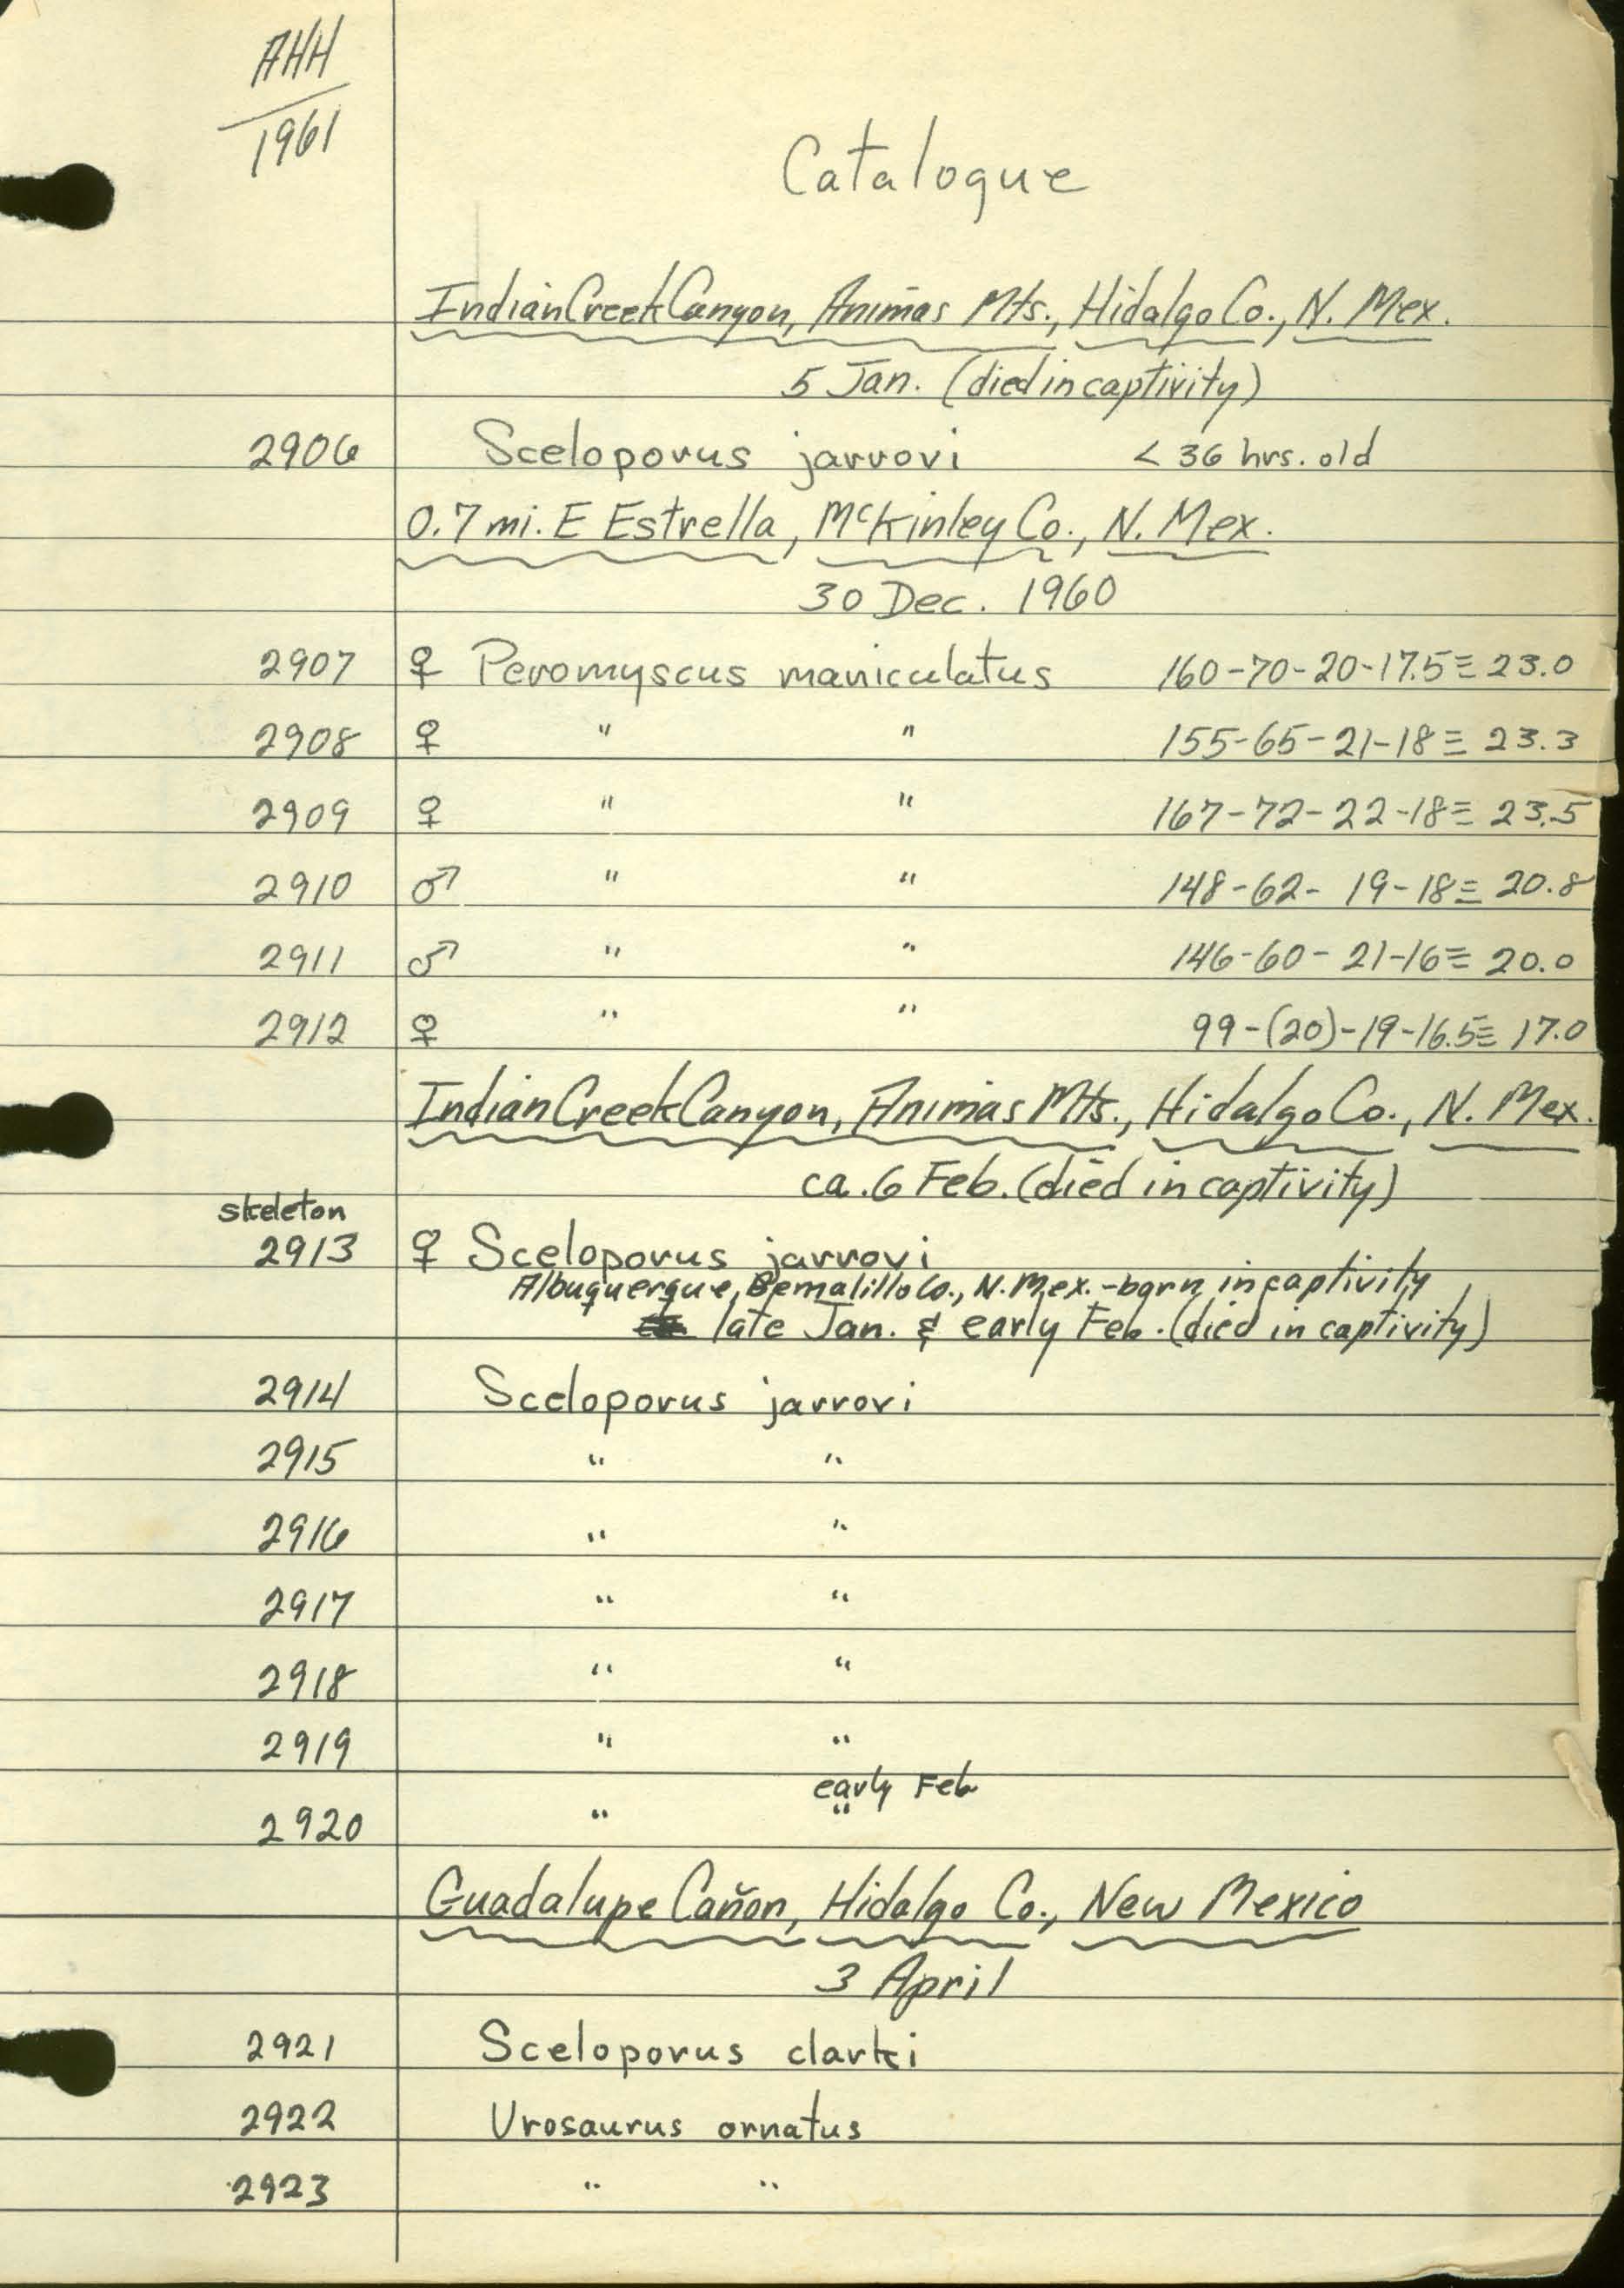 AHH
1961
Catalogue
Indian Creek Canyon, Animas Mts., Hidalgo Co., N. Mex.
5 Jan. (died in captivity)
2906 Sceloporus jarrovi < 36 hrs. old
0.7 mi. E Estrella, McKinley Co., N. Mex.
30 Dec. 1960
2907 ♀ Peromyscus maniculatus 160-70-20-17.5≡23.0
2908 ♀ " " 155-65-21-18≡23.3
2909 ♀ " " 167-72-22-18≡23.5
2910 ♂ " " 148-62-19-18≡20.8
2911 ♂ " " 146-60-21-16≡20.0
2912 ♀ " " 99-(20)-19-16.5≡17.0
Indian Creek Canyon, Animas Mts., Hidalgo Co., N. Mex.
ca. 6 Feb. (died in captivity)
skeleton
2913 ♀ Sceloporus jarrovi
Albuquerque, Bernalillo Co., N. Mex. - born in captivity
late Jan. & early Feb. (died in captivity)
2914 Sceloporus jarrovi
2915 " "
2916 " "
2917 " "
2918 " "
2919 " "
early Feb
2920 " "
Guadalupe Cañon, Hidalgo Co., New Mexico
3 April
2921 Sceloporus clarki
2922 Urosaurus ornatus
2923 " "